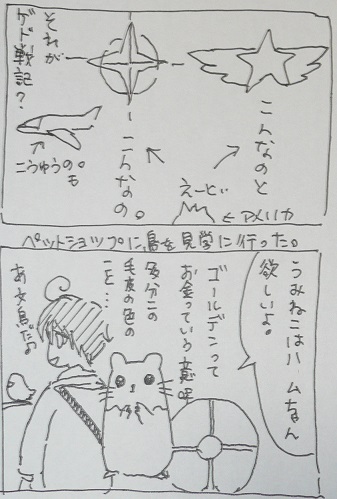 えーとぉ
←アメリカ
こんなのと
こんなの。
こうゆうの
も。
それが
ゲド戦記？
ペットショップに鳥を見学に行った。
うみねこはハムちゃん
欲しいよ。
ゴールデンって
お金っていう意味
多分この
毛皮の色の
こと…
あ文鳥だよ